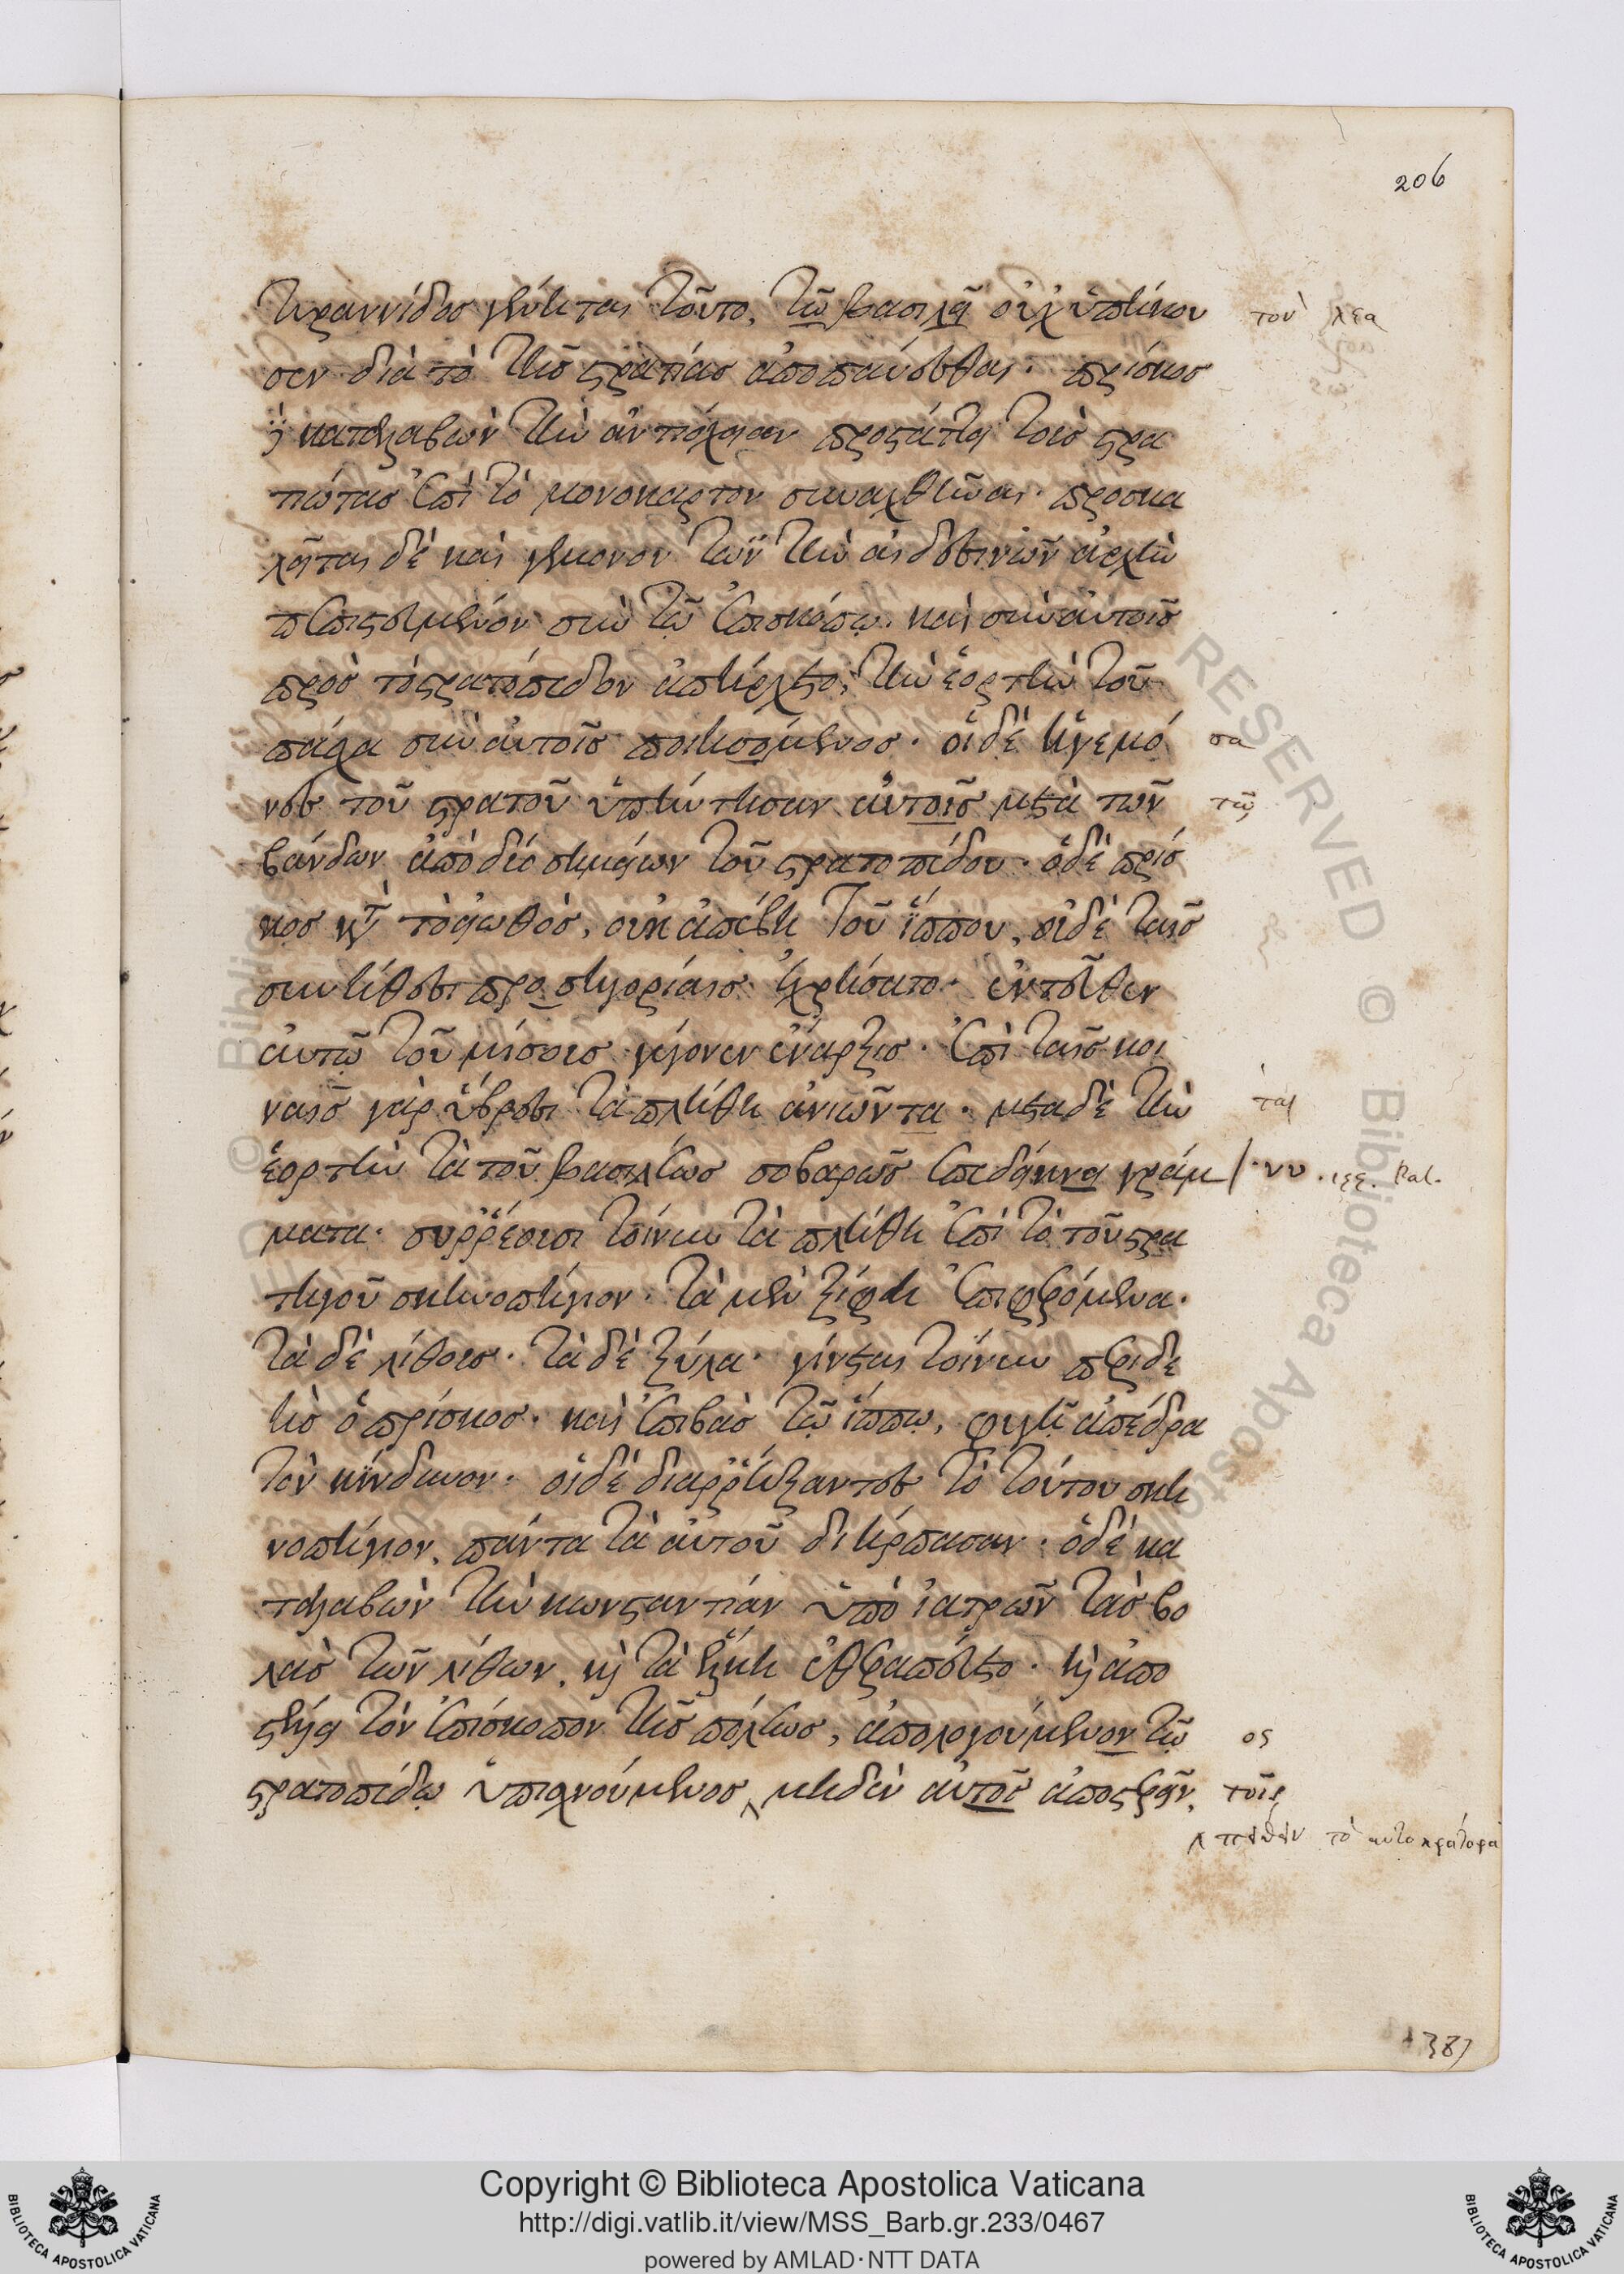 206
τυραννίδος γένηται τοῦτο, τῶ βασιλεῖ οὐχ ὑπήκου
σεν διὰ τὸ τῆς στρατιάσ ἀποπαύεσθαι· πρίσκοσ
καταλαβὼν τὴν ἀντιόχειαν προστάττει τοὺσ στρα
τιώτασ ἐπὶ τὸ μονόκαρτον συναχθῆναι· προσκα
λεῖται δὲ καὶ γερμανὸν τῶν τὴν
σὺν τῶ ἐπισκόπω. καὶ σὺν αὐτοῖσ
πρὸσ τὸ στρατόπεδον ἀπήρχετο, τὴν ἑορτὴν τοῦ
πάσχα σὺν αὐτοῖσ ποιησόμενοσ· οἱ δὲ ἡγεμό
νεσ τοῦ στρατοῦ ὑπήντησαν αὐτοῖσ μετὰ τῶν
βάνδων ἀπὸ δύο σημείων τοῦ στρατοπέδου· ὁ δὲ πρίσ
κοσ κατὰ τὸ εἰωθὸσ, οὐκ ἀπέβη τοῦ ἵππου, οὐδὲ ταῖσ
συνήθεσι προσηγορίαισ ἐχρήσατο· ἐντεῦθεν
αὐτῶ τοῦ μίσουσ γέγονεν ἔναρξισ· ἐπὶ ταῖσ κοι
ναῖσ γὰρ ὕβρεσι τὰ πλήθη ἀνιῶντα· μετὰ δὲ τὴν
ἑορτὴν τὰ τοῦ βασιλέωσ σοβαρῶσ γράμ
ματα· συρρέουσι τοίνυν τὰ πλήθη ἐπὶ τὸ τοῦ στρα
τηγοῦ σκηνοπήγιον· τὰ μὲν ξίφη ἐπιφερόμενα·
τὰ δὲ λίθουσ· τὰ δὲ ξύλα· γίνεται τοίνυν περιδε
ὴσ ὁ πρίσκοσ· καὶ ἐπιβὰσ τῶ ἵππω, φυγῆ ἀπέδρα
τὸν κίνδυνον· οἱ δὲ διαρρήξαντεσ τὸ τούτου σκη
νοπήγιον, πάντα τὰ αὐτοῦ διήρπασαν· ὁ δὲ κα
ταλαβὼν τὴν κωνσταντίαν ὑπὸ ἰατρῶν τὰσ βο
λὰσ τῶν λίθων, καὶ τὰ ἕλκη ἐθεραπεύετο· καὶ ἀπο
στέλλει τὸν ἐπίσκοπον τῆσ πόλεωσ, ἀπολογούμενον τῶ
στρατοπέδω ὑπισχνούμενοσ μηδὲν αὐτοὺσ ἀποστερεῖν,
τὸν λεα
σα
ται
νυ. Pal.
ος
τοῖς
πείθειν τὸν αὐτοκράτορα
Copyright © Biblioteca Apostolica Vaticana
http://digi.vatlib.it/view/MSS_Barb.gr.233/0467
powered by AMLAD·NTT DATA
BIBLIOTECA APOSTOLICA VATICANA
BIBLIOTECA APOSTOLICA VATICANA